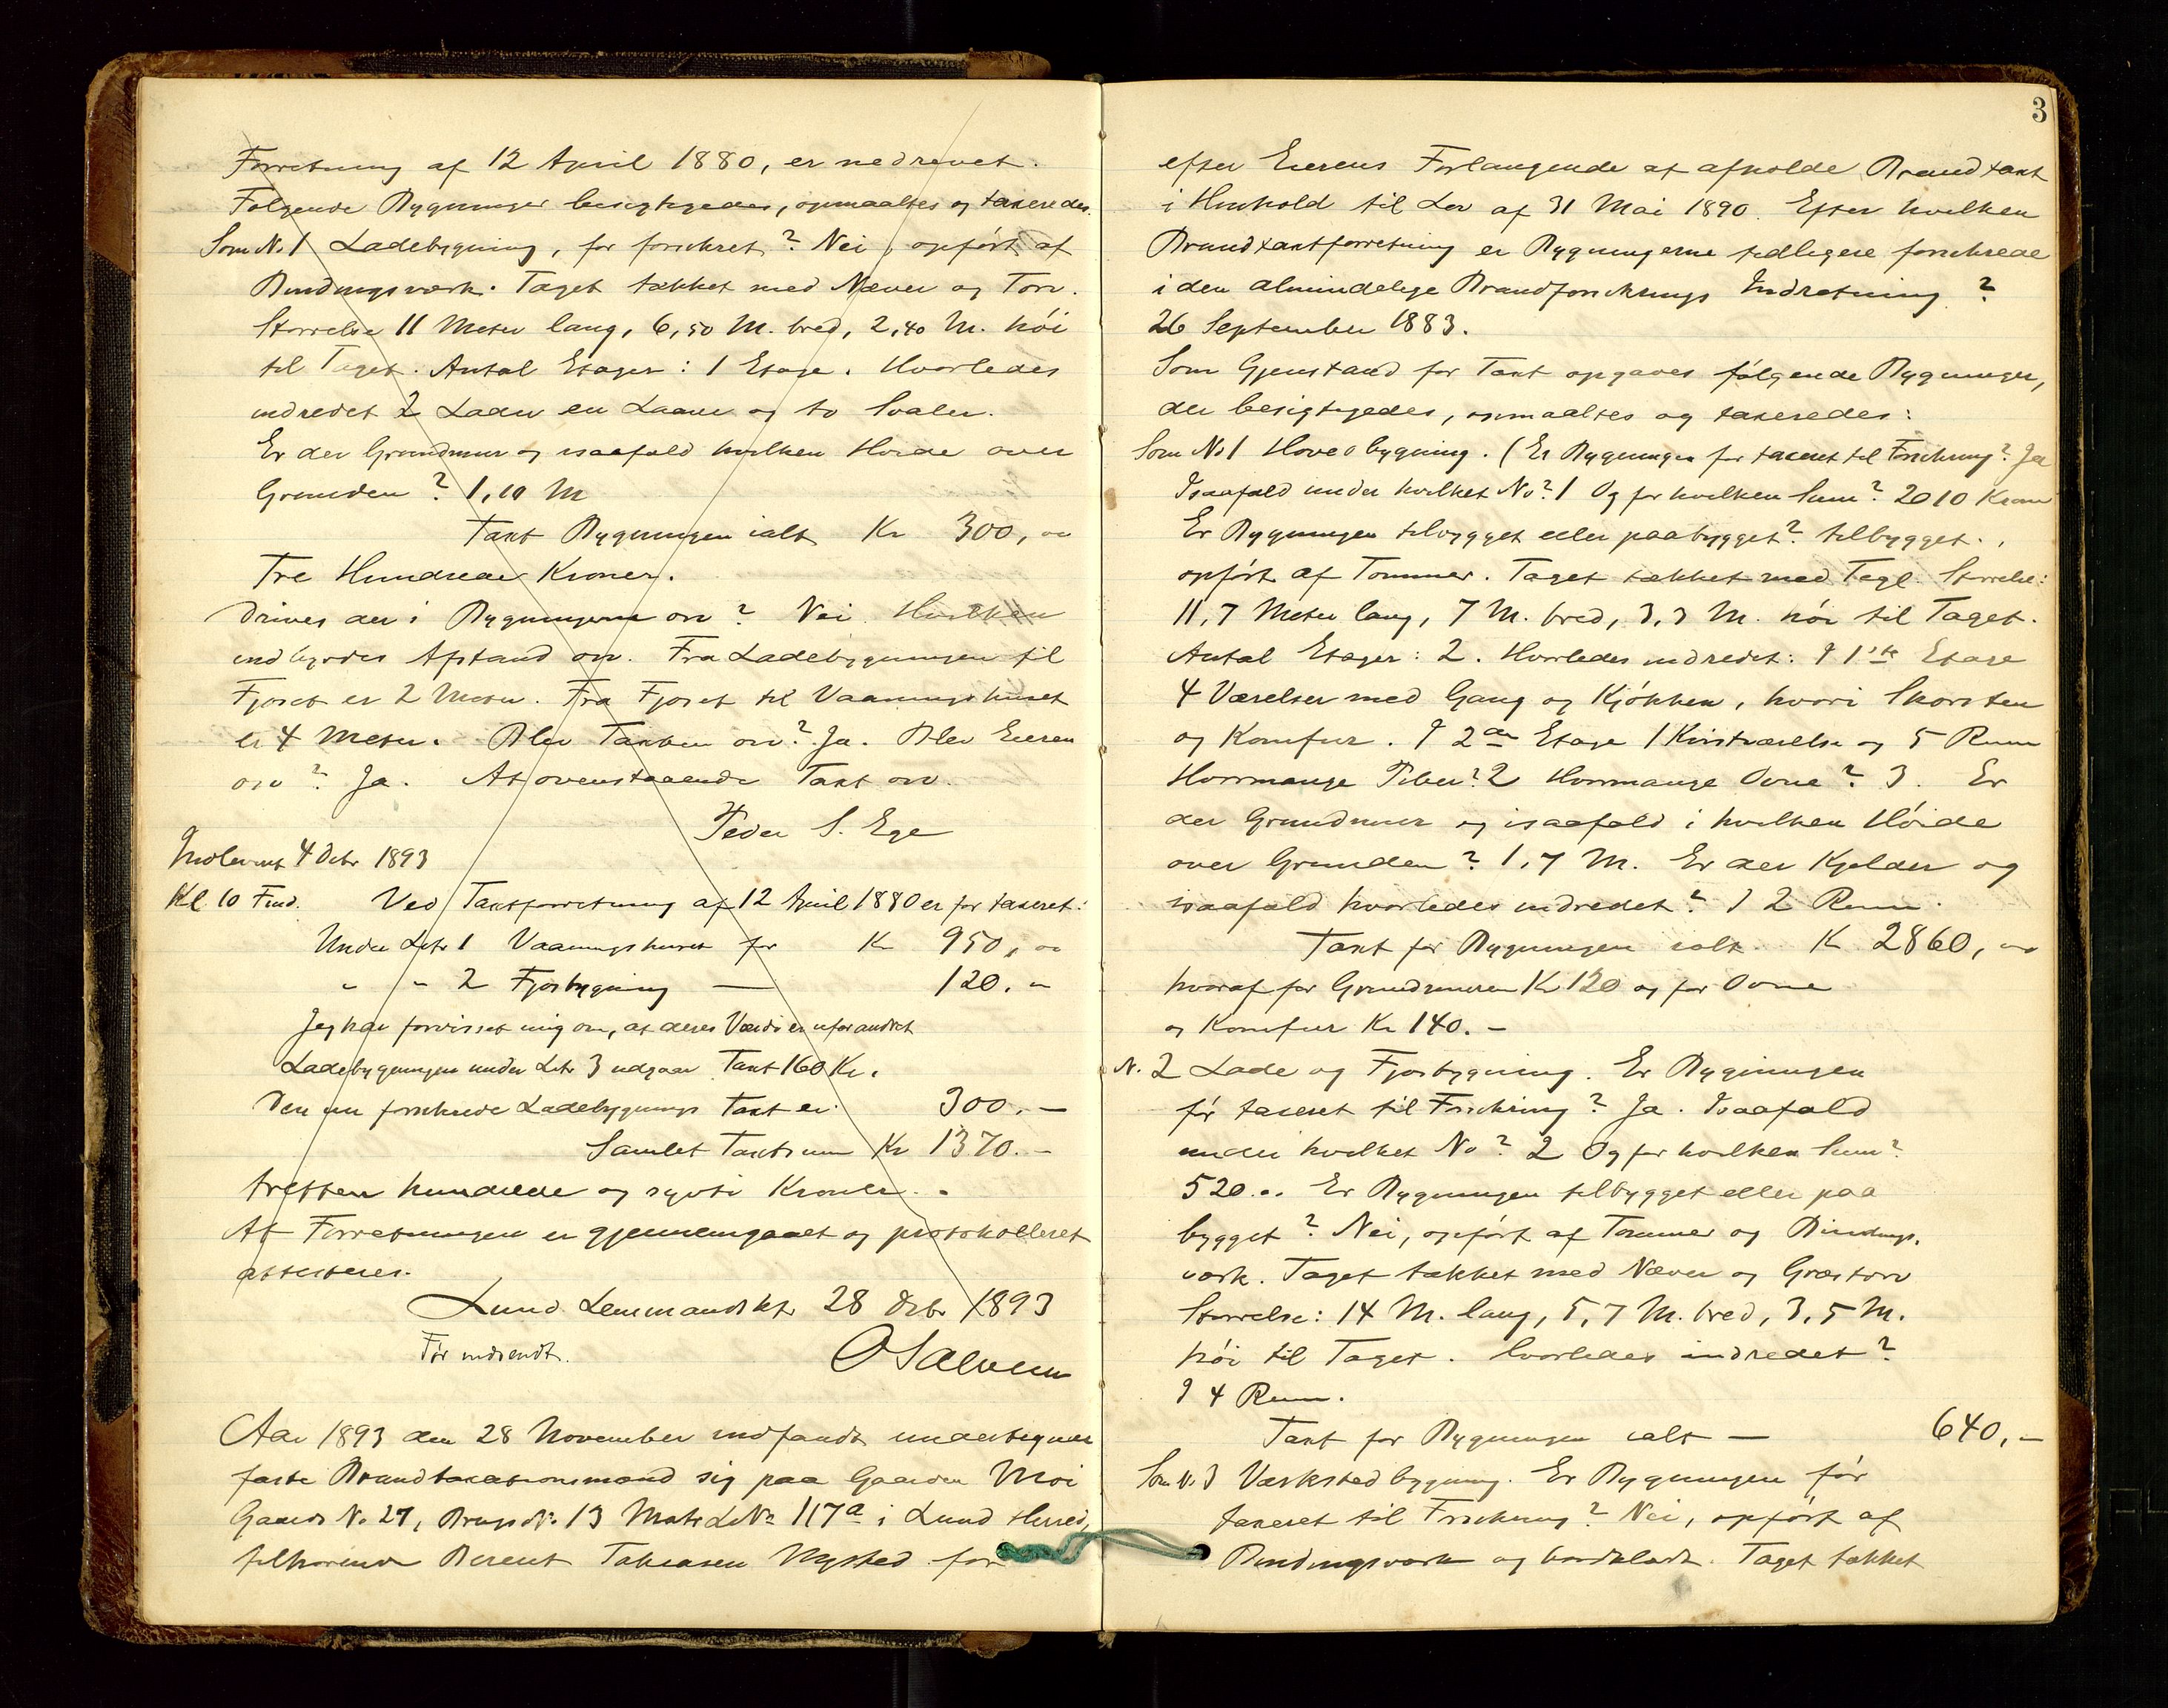 Forretning af 12 April 1880, er nedrevet.
Følgende Bygninger besigtigedes, opmaaltes og taxeredes.
Som No 1 Ladebygning, før forsikret? Nei, opført af
Bindingsverk. Taget tækket med Næver og Torv.
Størrelse 11 Meter lang, 6,50 M. bred, 2,40 M. høi
til Taget. Antal Etager: 1 Etage. Hvorledes
indredet 2 Lader en Laave og to Svaler.
Er der Grundmur og isaafald hvilken Høide over
Grunden? 1,10 M
Taxt Bygningen ialt Kr 300, oo
Tre Hundrede Kroner.
Drives der i Bygningerne osv? Nei. Hvilken
indbyrdes Afstand osv. Fra Ladebygningen til
Fjøset er 2 Meter. Fra Fjøset til Vaaningshuset
er 4 Meter. Blev Taxten osv? Ja. Blev Eieren
osv? Ja. At ovenstaaende Taxt osv.
Peder S. Ege
Indleveret 4 Debr 1893
Kl 10 Fmd. Ved Taxtforretning af 12 April 1880 er før taxeret:
Under Litr 1 Vaaningshuset for Kr 950, oo
" " 2 Fjøsbygning — 120. "
Jeg har forvisset mig om, at deres Værdi er uforandret
Ladebygningen under Litr 3 udgaar Taxt 160 Kr.
Den nu forsikrede Ladebygnings Taxt er 300. —
Samlet Taxtsum Kr 1370. —
tretten hundrede og sytti Kroner.
At Forretningen er gjennemgaaet og protokolleret
attesteres.
Lund Lensmandskt 28 Debr 1893
Før indsendt.
O Salvesen
Aar 1893 den 28 November indfandt undertegnede
faste Brandtaxationsmænd sig paa Gaarden Moi
Gaards No 27, Brugs No 13 Matr L No 117a i Lund Herred,
tilhørende Berent Nysted for
3
efter Eierens Forlangende at afholde Brandtaxt
i Henhold til Lov af 31 Mai 1890. Efter hvilken
Brandtaxtforretning er Bygningerne tidligere forsikrede
i den almindelige Brandforsikrings Indretning?
26 September 1883.
Som Gjenstand for Taxt opgaves følgende Bygninger,
der besigtigedes, opmaaltes og taxeredes:
Som No 1 Hovedbygning. (Er Bygningen før taxeret til Forsikring? Ja
Isaafald under hvilket No? 1 Og for hvilken Sum? 2010 Kroner
Er Bygningen tilbygget eller paabygget? tilbygget.,
opført af Tømmer. Taget tækket med Tegl. Størrelse:
11,7 Meter lang, 7 M. bred, 3,3 M. høi til Taget.
Antal Etager: 2. Hvorledes indredet: I 1ste Etage
4 Værelser med Gang og Kjøkken, hvori Skorsten
og Komfur. I 2den Etage 1 Kvistværelse og 5 Rum
Hvormange Piber? 2 Hvormange Ovne? 3. Er
der Grundmur og isaafald i hvilken Høide
over Grunden? 1,7 M. Er der Kjelder og
isaafald hvorledes indredet? I 2 Rum.
Taxt for Bygningen ialt K 2860, oo
hvoraf for Grundmuren Kr 120 og for Ovne
og Komfur Kr 140. —
N. 2 Lade og Fjøsbygning. Er Bygningen
før taxeret til Forsikring? Ja. Isaafald
under hvilket No? 2 Og for hvilken Sum?
520.. Er Bygningen tilbygget eller paa
bygget? Nei, opført af Tømmer og Bindings.
værk. Taget tækket med Næver og Græstorv
Størrelse: 14 M. lang, 5,7 M. bred, 3,5 M.
høi til Taget. Hvorledes indredet?
I 4 Rum.
Taxt for Bygningen ialt — 640, —
Som N. 3 Værkstedbygning. Er Bygningen før
taxeret til Forsikring? Nei, opført af
Bindingsværk og bordklædt. Taget tækket